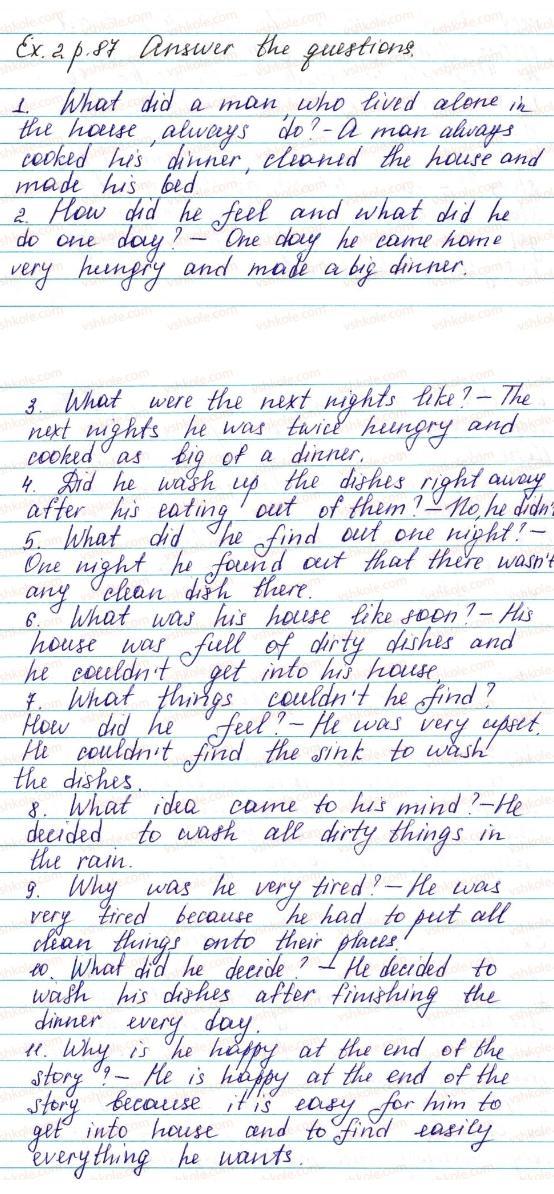 Ex. 2 p. 87 Answer the questions.
1. What did a man, who lived alone in
the house, always do? - A man always
cooked his dinner, cleaned the house and
made his bed
2. How did he feel and what did he
do one day? - One day he came home
very hungry and made a big dinner.
3. What were the next nights like? - The
next nights he was twice hungry and
cooked as big of a dinner.
4. Did he wash up the dishes right away
after his eating out of them? - No, he didn't
5. What did he find out one night? -
One night he found out that there wasn't
any clean dish there.
6. What was his house like soon? - His
house was full of dirty dishes and
he couldn't get into his house.
7. What things couldn't he find?
How did he feel? - He was very upset.
He couldn't find the sink to wash
the dishes.
8. What idea came to his mind? - He
decided to wash all dirty things in
the rain.
9. Why was he very tired? - He was
very tired because he had to put all
clean things onto their places.
10. What did he decide? - He decided to
wash his dishes after finishing the
dinner every day.
11. Why is he happy at the end of the
story? - He is happy at the end of the
story because it is easy for him to
get into house and to find easily
everything he wants.